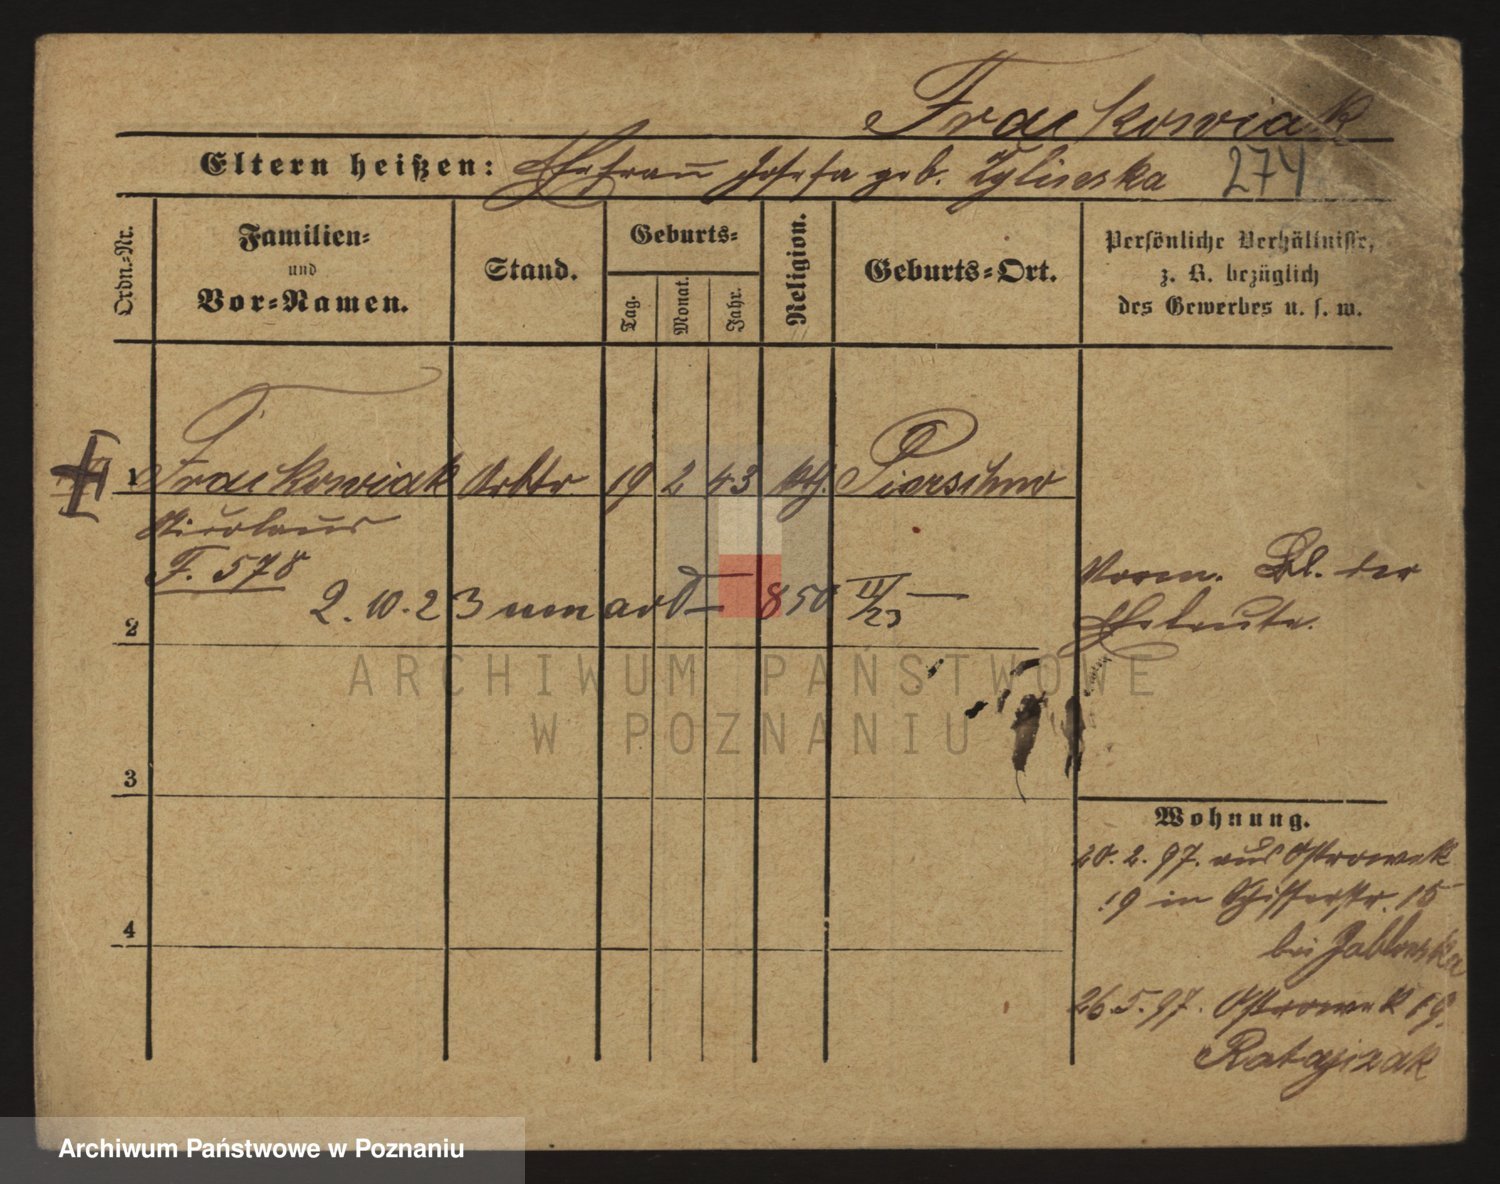 Frackowiak
Eltern heißen: Ehefrau Josefa geb. Zylinska 274
Ordn.-Nr.
Familien-
und
Vor-Namen.
Stand.
Geburts-
Tag.
Monat.
Jahr.
Religion.
Geburts-Ort.
Persönliche Verhältnisse,
z. B. bezüglich
des Gewerbes u. s. w.
1 Frackowiak Arbtr 19 2 43 kth. Pierschno
Nicolaus
F. 578
2. 10. 23 850
Vorm. Bl. der
Eheleute.
2
ARCHIWUM PAŃSTWOWE
W POZNANIU
3
Wohnung.
20. 2. 97. aus Ostrowek
19 in Schifferstr. 15
bei Jablonska
4
26. 5. 97. Ostrowek 19.
Ratajczak
Archiwum Państwowe w Poznaniu